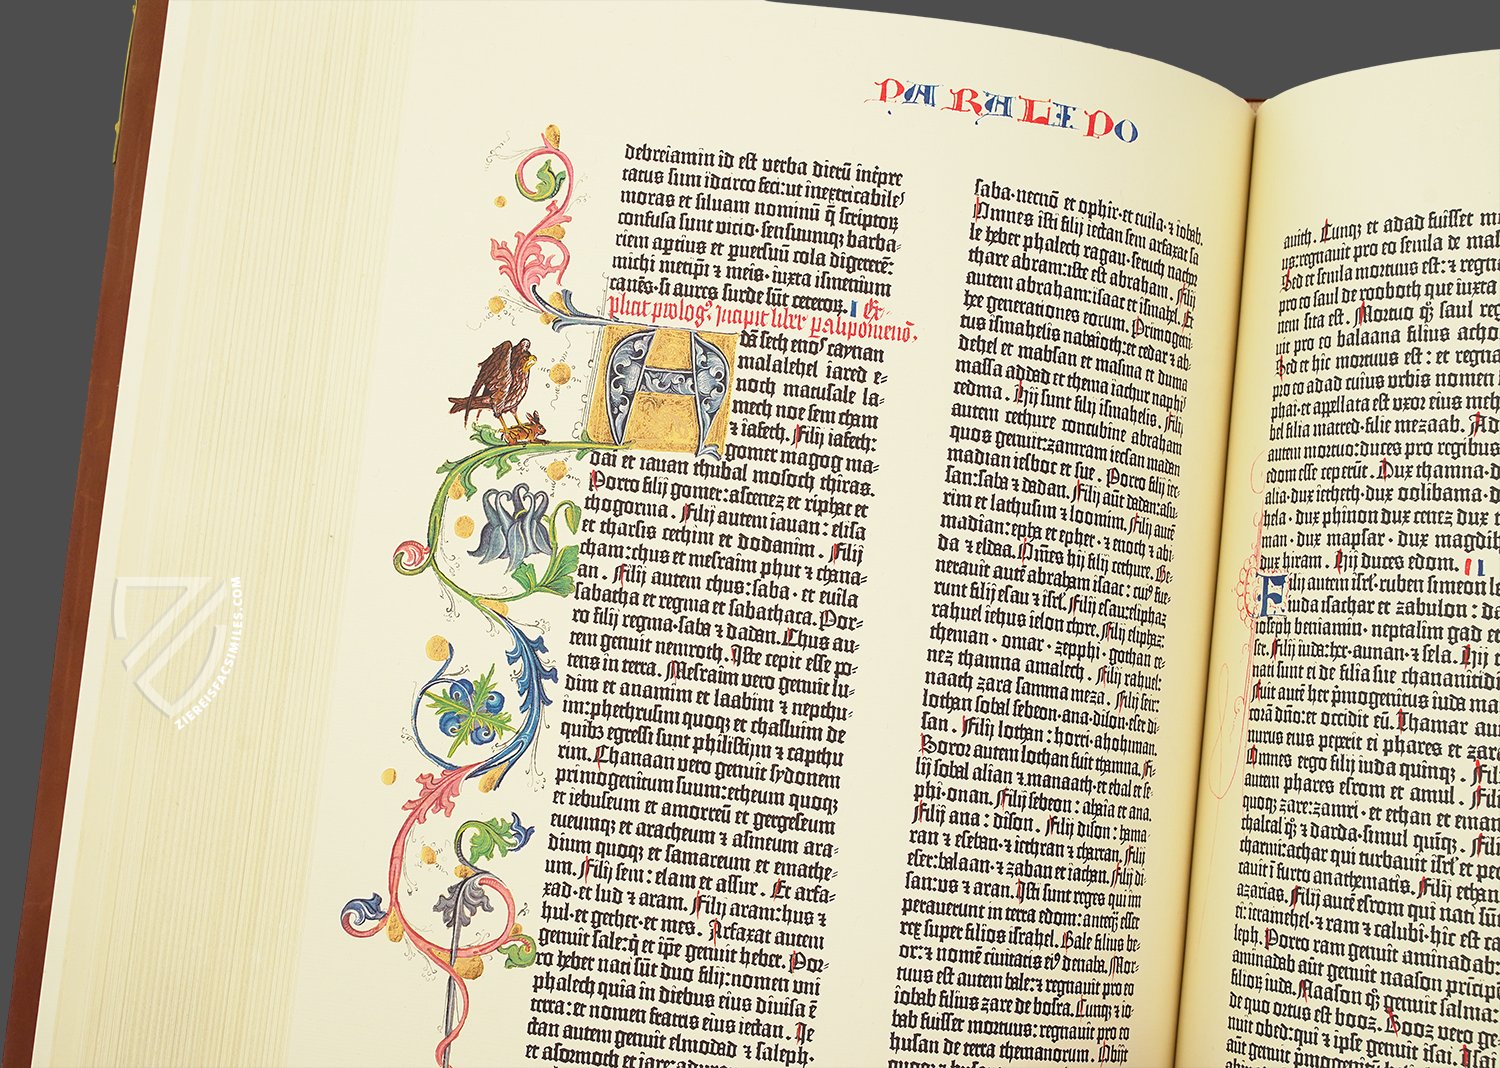 PARALIPO
debreiamin id est verba dierū inṫpre
tatus sum idcirco feci: ut inextricabiles
moras et siluam nominū q̄ scriptoꝝ
confusa sunt vicio · sensuumqꝫ barba-
riem aptius et ꝑ versuū cola digererē:
michi metipī ⁊ meis · iuxta ismenium
canēs · si aures surde sūt ceteroꝝ. I Ex-
plicit prolog⁹. Incipit liber paralipomenō.
Adā seth enos caynan
malalehel iared e-
noch matusale la-
mech noe sem cham
⁊ iafeth. Filij iafeth:
gomer magog ma-
dai et iauan thubal mosoch thiras.
Porro filij gomer: ascenez et riphat et
thogorma. Filij autem iauan: elisa
et tharsis cethim et dodanim. Filij
cham: chus et mesraim phut ⁊ chana-
an. Filij autem chus: saba · et euila
sabatha et regma et sabathaca. Por-
ro filij regma · saba ⁊ dadan. Chus au-
tem genuit nemroth. Iste cepit esse po-
tens in terra. Mesraim vero genuit lu-
dim et anamim et laabim ⁊ nepthu-
im: phethrusim quoqꝫ et chasluim de
quibꝫ egressi sunt philistijm ⁊ capthu
rim. Chanaan vero genuit sydonem
primogenitum suum: etheum quoqꝫ
et iebuseum et amorreū et gergeseum
eueumqꝫ et aracheum ⁊ asineum ara-
dium quoqꝫ et samareum et emathe-
um. Filij sem: elam et assur. Et arfa-
xad · et lud ⁊ aram. Filij aram: hus ⁊
hul · et gether · et mes. Arfaxat autem
genuit sale: q̇ et ip̄e genuit heber. Por-
ro heber nati sūt duo filij: nomen vni
phalech quia in diebus eius diuisa ē
terra: et nomen fratris eius iectan. Ie
ctan autem genuit elmodad ⁊ saleph ·
et asormoth et iare · adura
saba · necnō et ophir · et euila · ⁊ iobab.
Omnes isti filij iectan sem arfaxat sa
le heber phalech ragau · seruch nachor
thare abram: iste est abraham. Filij
autem abraham: isaac et ismahel. Et
hee generationes eorum. Primogeni-
tus ismahelis nabaioth: et cedar ⁊ ab-
dehel et mabsan et masma et duma
massa addad et thema iachur naphis
cedma. Hij sunt filij ismahelis. Filij
autem cethure concubine abraham
quos genuit: zamram iecsan madan
madian iesboc et sue. Porro filij iec-
san: saba ⁊ dadan. Filij aūt dadan: asu-
rim et lathusim ⁊ loomim. Filij autē
madian: epha et epher · ⁊ enoch ⁊ abi-
da ⁊ eldaa. Om̄es hij filij cethure. Ge-
nerauit autē abraham isaac: cui⁹ fue-
runt filij esau ⁊ isrl̄. Filij esau: eliphaz
rahuel iehus ielon chore. Filij eliphaz:
theman · omar · zepphi · gothan ce-
nez thamna amalech. Filij rahuel:
naath zara samma meza. Filij seir:
lothan sobal sebeon · ana · dison · eser di-
san. Filij lothan: horri · ahohiman.
Soror autem lothan fuit thamna. Fi-
lij sobal alian ⁊ manaath · et ebal et se-
phi · onan. Filij sebeon: ahaia et ana.
Filij ana: dison. Filij dison: hama-
ran ⁊ eseban · ⁊ iethran ⁊ charran. Filij
eser: balaan · ⁊ zaban et iachan. Filij di-
san: vs ⁊ aran. Isti sunt reges qui im
perauerunt in terra edom: anteqꝫ esset
rex super filios israhel. Bale filius be-
or: ⁊ nomē ciuitatis ei⁹ denaba. Mor-
tuus est autem bale: ⁊ regnauit pro eo
iobab filius zare de bosra. Cumqꝫ ⁊ io-
bab fuisset mortuus: regnauit pro eo
husan de terra themanorum. Obijt
auith. Cumqꝫ et adad fuisset
us: regnauit pro eo semla de
Sed et semla mortuus est: ⁊
pro eo saul de rooboth que iuxta
nem sita est. Mortuo qꝫ saul
uit pro eo balaana filius
Sed et hic mortuus est: et
pro eo adad cuius vrbis nomen
phai · et appellata est vxor eius
bel filia matred · filie mezaab.
autem mortuo: duces pro regibus
edom esse ceperūt. Dux thamna ·
alia · dux ietheth · dux oolibama ·
hela · dux phinon dux cenez dux
man · dux mapsar · dux
dux hiram. Hij duces edom. II
Filij autem isrl̄ · ruben simeon
iuda isachar et zabulon:
ioseph beniamin · neptalim gad et
ser. Filij iuda: her · aunan · ⁊ sela.
nati sunt ei de filia sue
Fuit autē her p̄mogenitus iuda
corā dn̄o: et occidit eū. Thamar
nurus eius peperit ei phares et
Omnes ergo filij iuda quinqꝫ.
autem phares esrom et amul.
quoqꝫ zare: zamri · et ethan et
thalcal qꝫ ⁊ darda · simul quinqꝫ.
charmi: achar qui turbauit isrl̄ et
cauit ī furto anathematis. Filij ethan
azarias. Filij autē esrom qui nati sūt
ei: ieramehel · ⁊ ram ⁊ calubi · hic est
leph. Porro ram genuit aminadab:
aminadab aūt genuit naason
filioꝝ iuda. Naason qꝫ genuit salma:
de quo ortus est booz. Booz vero
nuit obed: qui ⁊ ipse genuit isai. Isai
aūt genuit p̄mogenitum
ZIEREISFACSIMILES.COM